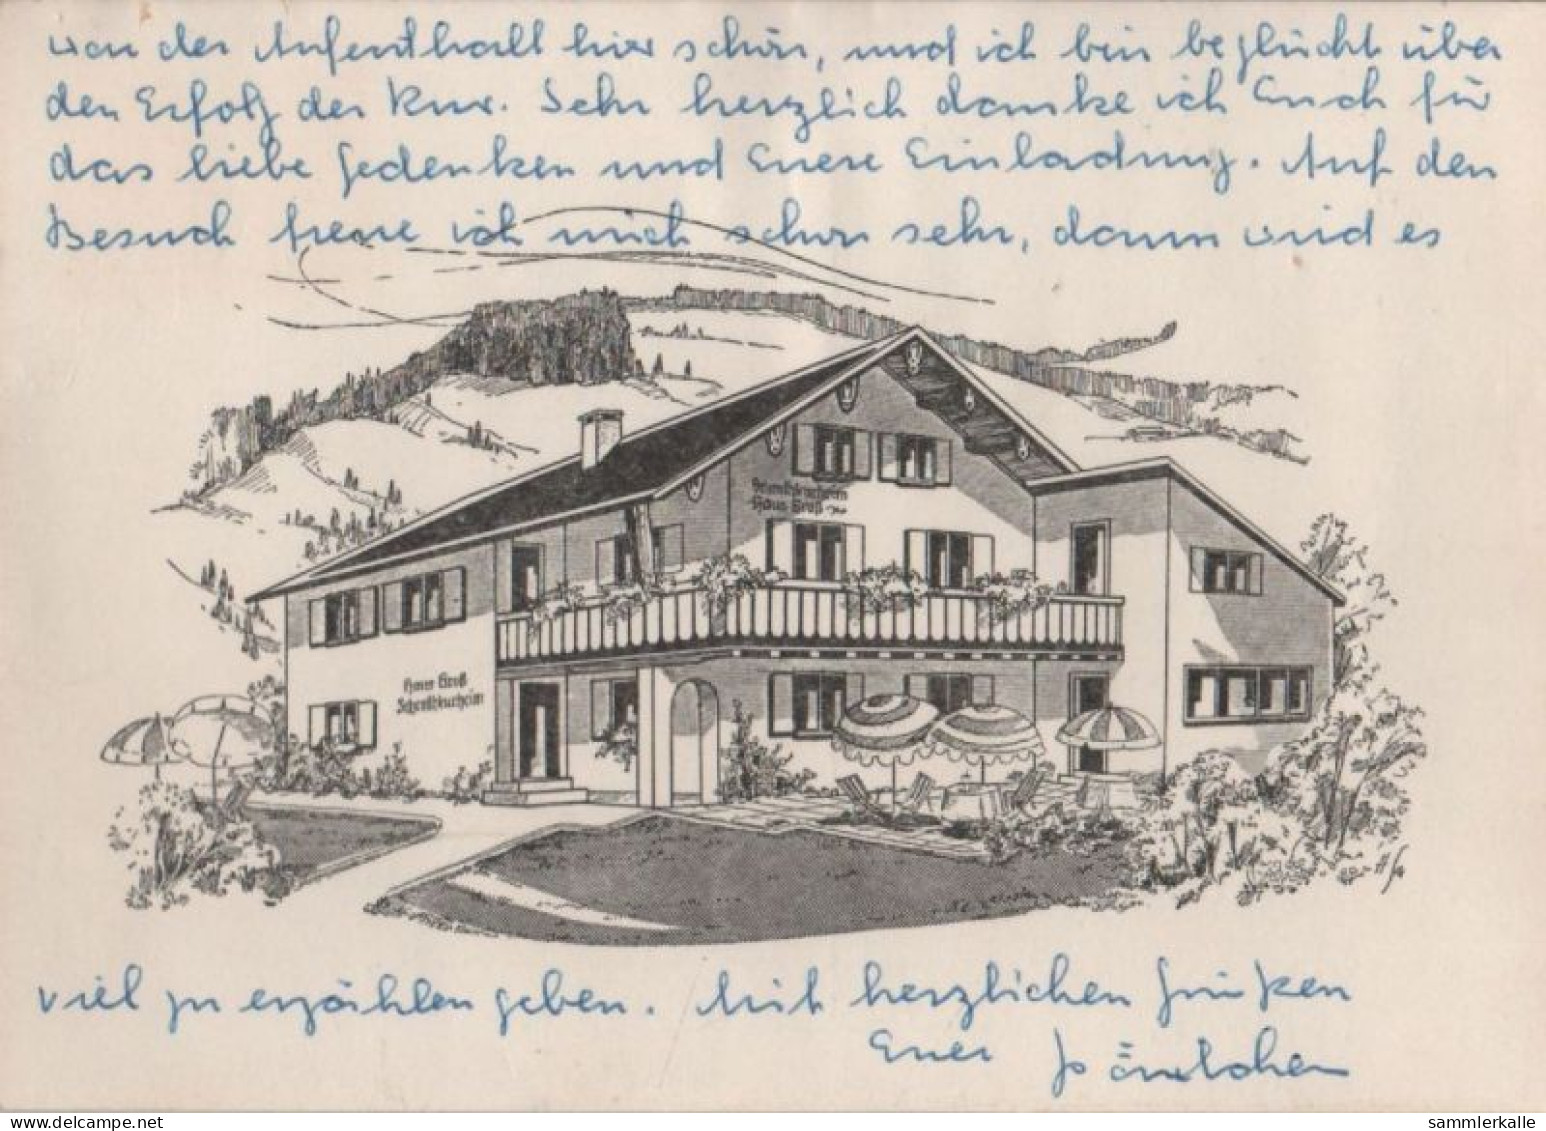 war der Aufenthalt hier schön, und ich bin beglückt über
den Erfolg der Kur. Sehr herzlich danke ich Euch für
das liebe Gedenken und Euere Einladung. Auf den
Besuch freue ich mich schon sehr, dann wird es
Haus Groß
Haus Groß
Schrothkurheim
viel zu erzählen geben. Mit herzlichen Grüßen
Euer
www.delcampe.net
sammlerkalle